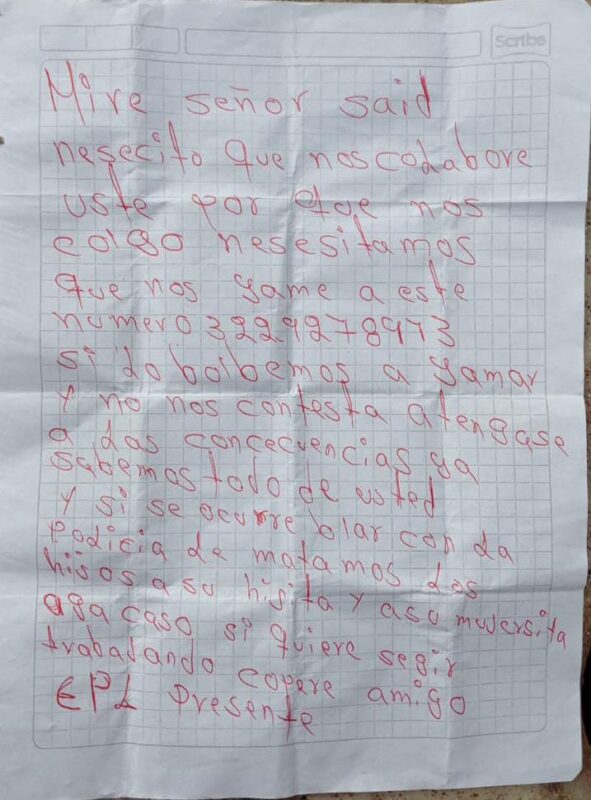 Scribe
Mire señor said
nesecito que nos codabore
uste por que nos
colgo nesesitamos
que nos yame a este
numero 3229278973
si do bolbemos a yamar
y no nos contesta atengase
a das concecuencias ya
sabemos todo de usted
y si se ocurre blar con da
podicia de matamos dos
hisos a su hisita y a su mujersita
aga caso si quiere segir
trabajando copere amigo
EPL presente